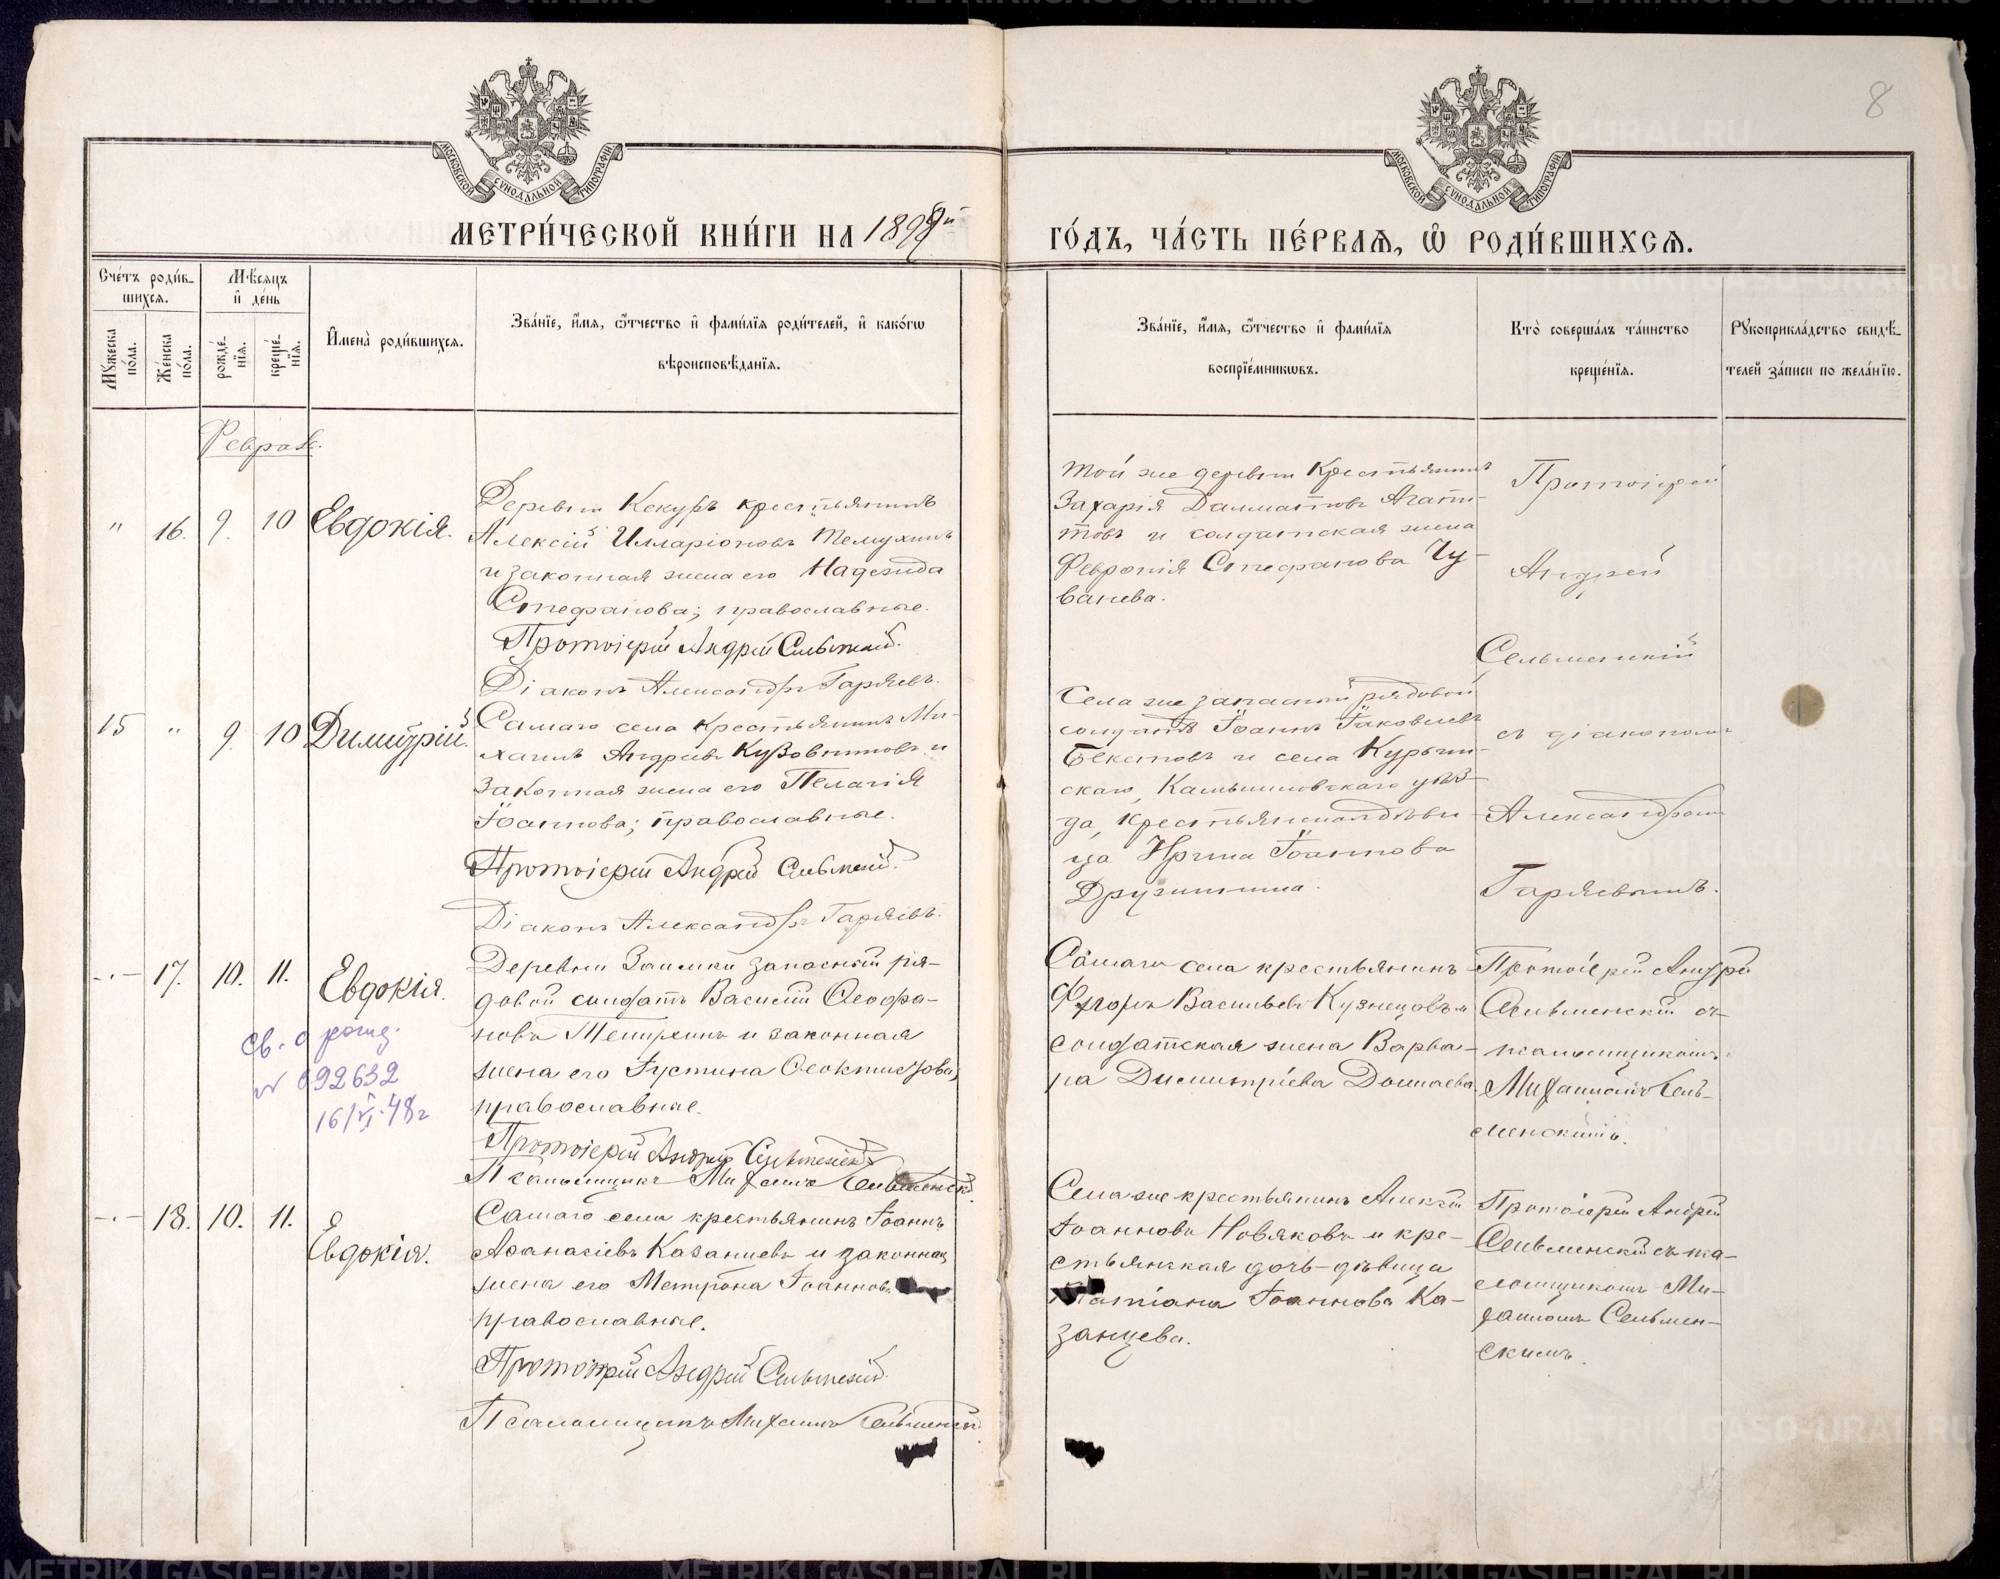 МОСКОВСКОЙ СѴНОДАЛЬНОЙ ТИПОГРАФІИ
МОСКОВСКОЙ СѴНОДАЛЬНОЙ ТИПОГРАФІИ
8
МЕТРИ́ЧЕСКОЙ КНИ́ГИ НА
ГО́ДЪ, ЧА́СТЬ ПЕ́РВАѦ, Ѡ҆ РОДИ́ВШИХСѦ.
Сче́тъ роди́в-
шихсѧ.
Мѣ́сѧцъ
и҆ де́нь
Мꙋ́жеска по́ла.
Же́нска по́ла.
рожде́-
нїѧ.
креще́-
нїѧ.
И҆мена̀ роди́вшихсѧ.
Зва́нїе, и҆́мѧ, ѻ҆́тчество и҆ фами́лїѧ роди́телей, и҆ како́гѡ
вѣроисповѣ́данїѧ.
Зва́нїе, и҆́мѧ, ѻ҆́тчество и҆ фами́лїѧ
воспрїе́мникѡвъ.
Кто̀ соверша́лъ та́инство
креще́нїѧ.
Рꙋкоприкла́дство свидѣ́-
телей за́писи по жела́нїю.
Феврал.
" 16. 9. 10 Евдокія.
Деревни Кекуръ крестьянинъ
Алексій Илларіоновъ Темухинъ
и законная жена его Надежда
Стефанова; православные.
Протоіерей Андрей Сельменскій.
Діаконъ Александръ Гаряевъ.
Той же деревни Крестьянинъ
Захарія Далматовъ Агапи-
товъ и солдатская жена
Феvронія Стефанова Чу-
вашева.
Протоіерей
Андрей
Сельменскій
съ діакономъ
Александромъ
Гаряевымъ.
15 " 9. 10 Димитрій.
Самаго села Крестьянинъ Ми-
хаилъ Андреевъ Кузовниковъ и
законная жена его Пелагія
Іоаннова; православные.
Протоіерей Андрей Сельменскій.
Діаконъ Александръ Гаряевъ.
Села же запасный рядовой
солдатъ Іоаннъ Іаковлевъ
Бекетовъ и села Курьин-
скаго, Камышловскаго уѣз-
да, крестьянская дѣви-
ца Ирина Іоаннова
Дружинина.
-"- 17. 10. 11. Евдокія.
Деревни Заимки запасный ря-
довой солдатъ Василій Ѳеофа-
новъ Темухинъ и законная
жена его Іустина Ѳеоктистова,
православные.
Протоіерей Андрей Сельменскій
Псаломщикъ Михаилъ Сельменскій.
Св. о рожд.
№ 092632
16/VI-48г
Самаго села крестьянинъ
Ѳедоръ Васильевъ Кузнецовъ и
солдатская жена Варва-
ра Димитріева
Протоіерей Андрей
Сельменскій съ
псаломщикомъ
Михаиломъ Сель-
менскимъ.
-"- 18. 10. 11. Евдокія.
Самаго села крестьянинъ Іоаннъ
Аѳанасіевъ Казанцевъ и законная
жена его Матрона Іоаннова
православные.
Протоіерей Андрей Сельменскій.
Псаломщикъ Михаилъ Сельменскій.
Села же крестьянинъ Алексій
Іоанновъ Новяковъ и кре-
стьянская дочь-дѣвица
Татіана Іоаннова Ка-
занцева.
Протоіерей Андрей
Сельменскій съ пса-
ломщикомъ Ми-
хаиломъ Сельмен-
скимъ.
METRIKI.GASO-URAL.RU